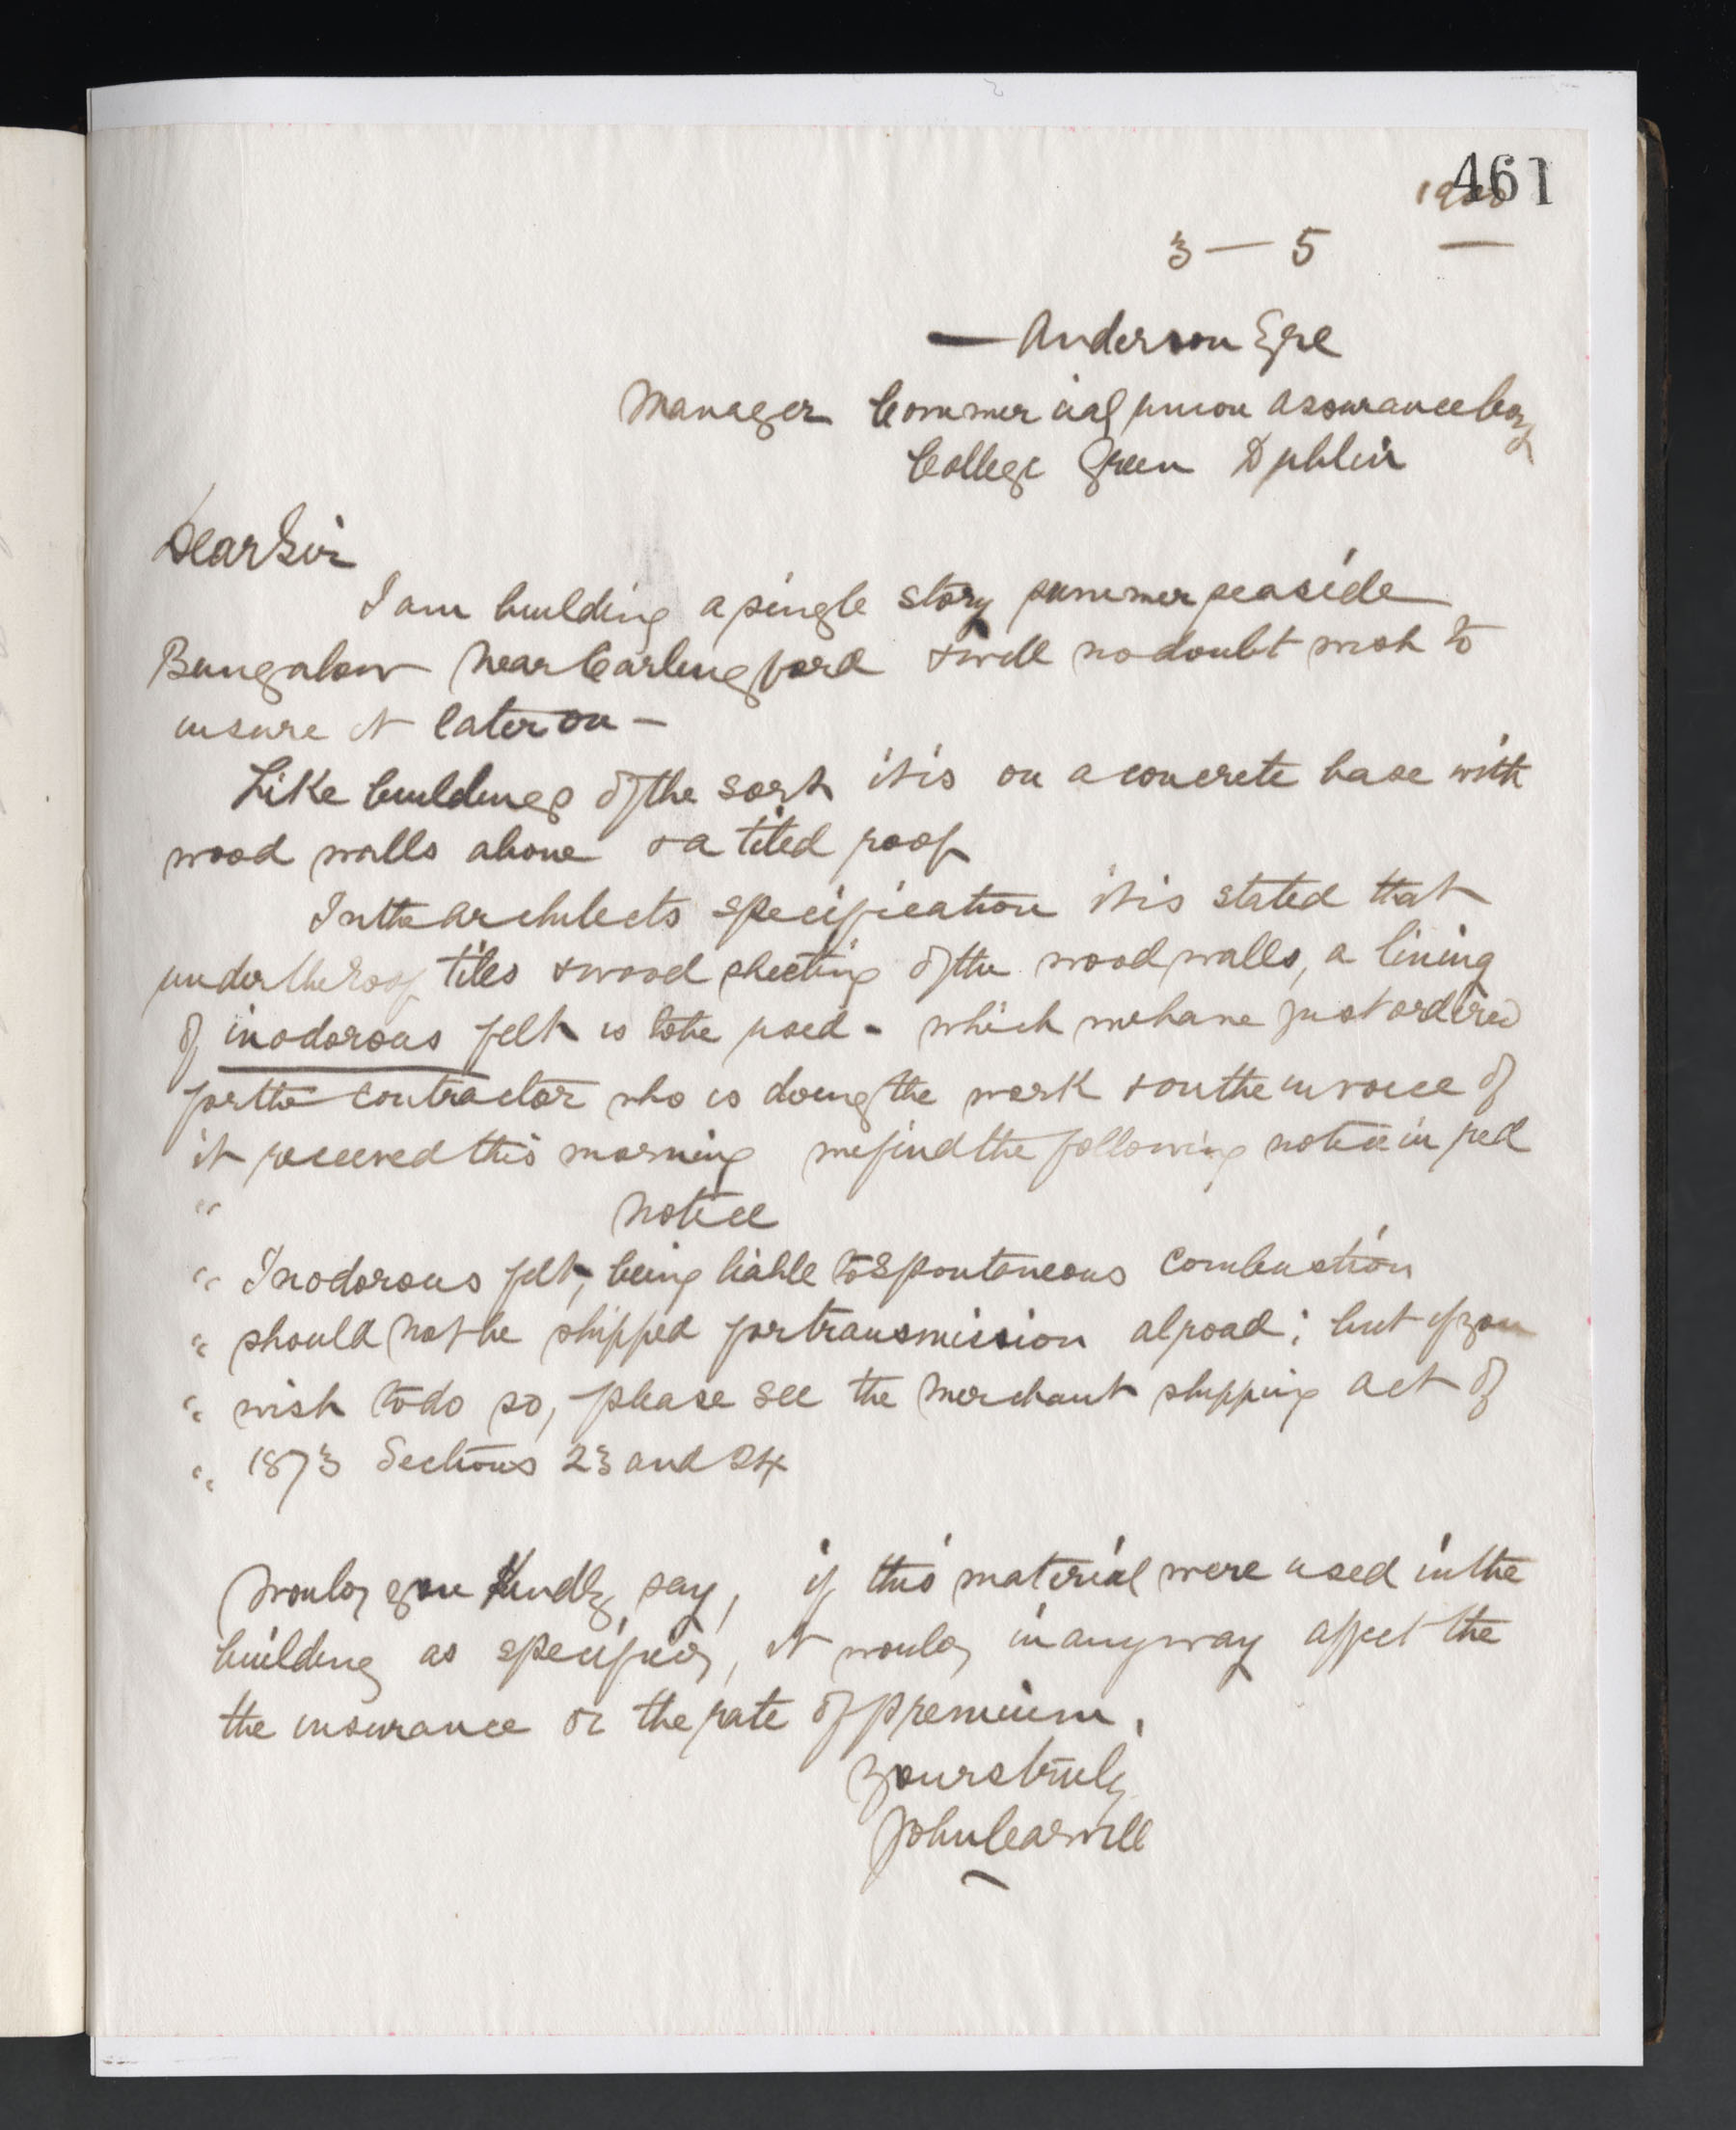 461
3 — 5
— Anderson Esqre
Manager Commercial Union Assurance Coy
College Green Dublin
Dear Sir
I am building a single story summer seaside
Bungalow near Carlingford & will no doubt wish to
insure it later on —
Like buildings of the sort it is on a concrete base with
wood walls above & a tiled roof
In the architects specification it is stated that
under the roof tiles & wood sheeting of the wood walls, a lining
of inodorous felt is to be used - which we have just ordered
for the contractor who is doing the work & on the invoice of
it received this morning we find the following notice in red
" Notice
" Inodorous felt, being liable to spontaneous combustion
" should not be shipped for transmission abroad; but if you
" wish to do so, please see the Merchant shipping act of
" 1873 Sections 23 and 24
Would you kindly say, if this material were used in the
building as specified, it would in any way affect the
the insurance or the rate of premium.
Yours truly
John Carvill